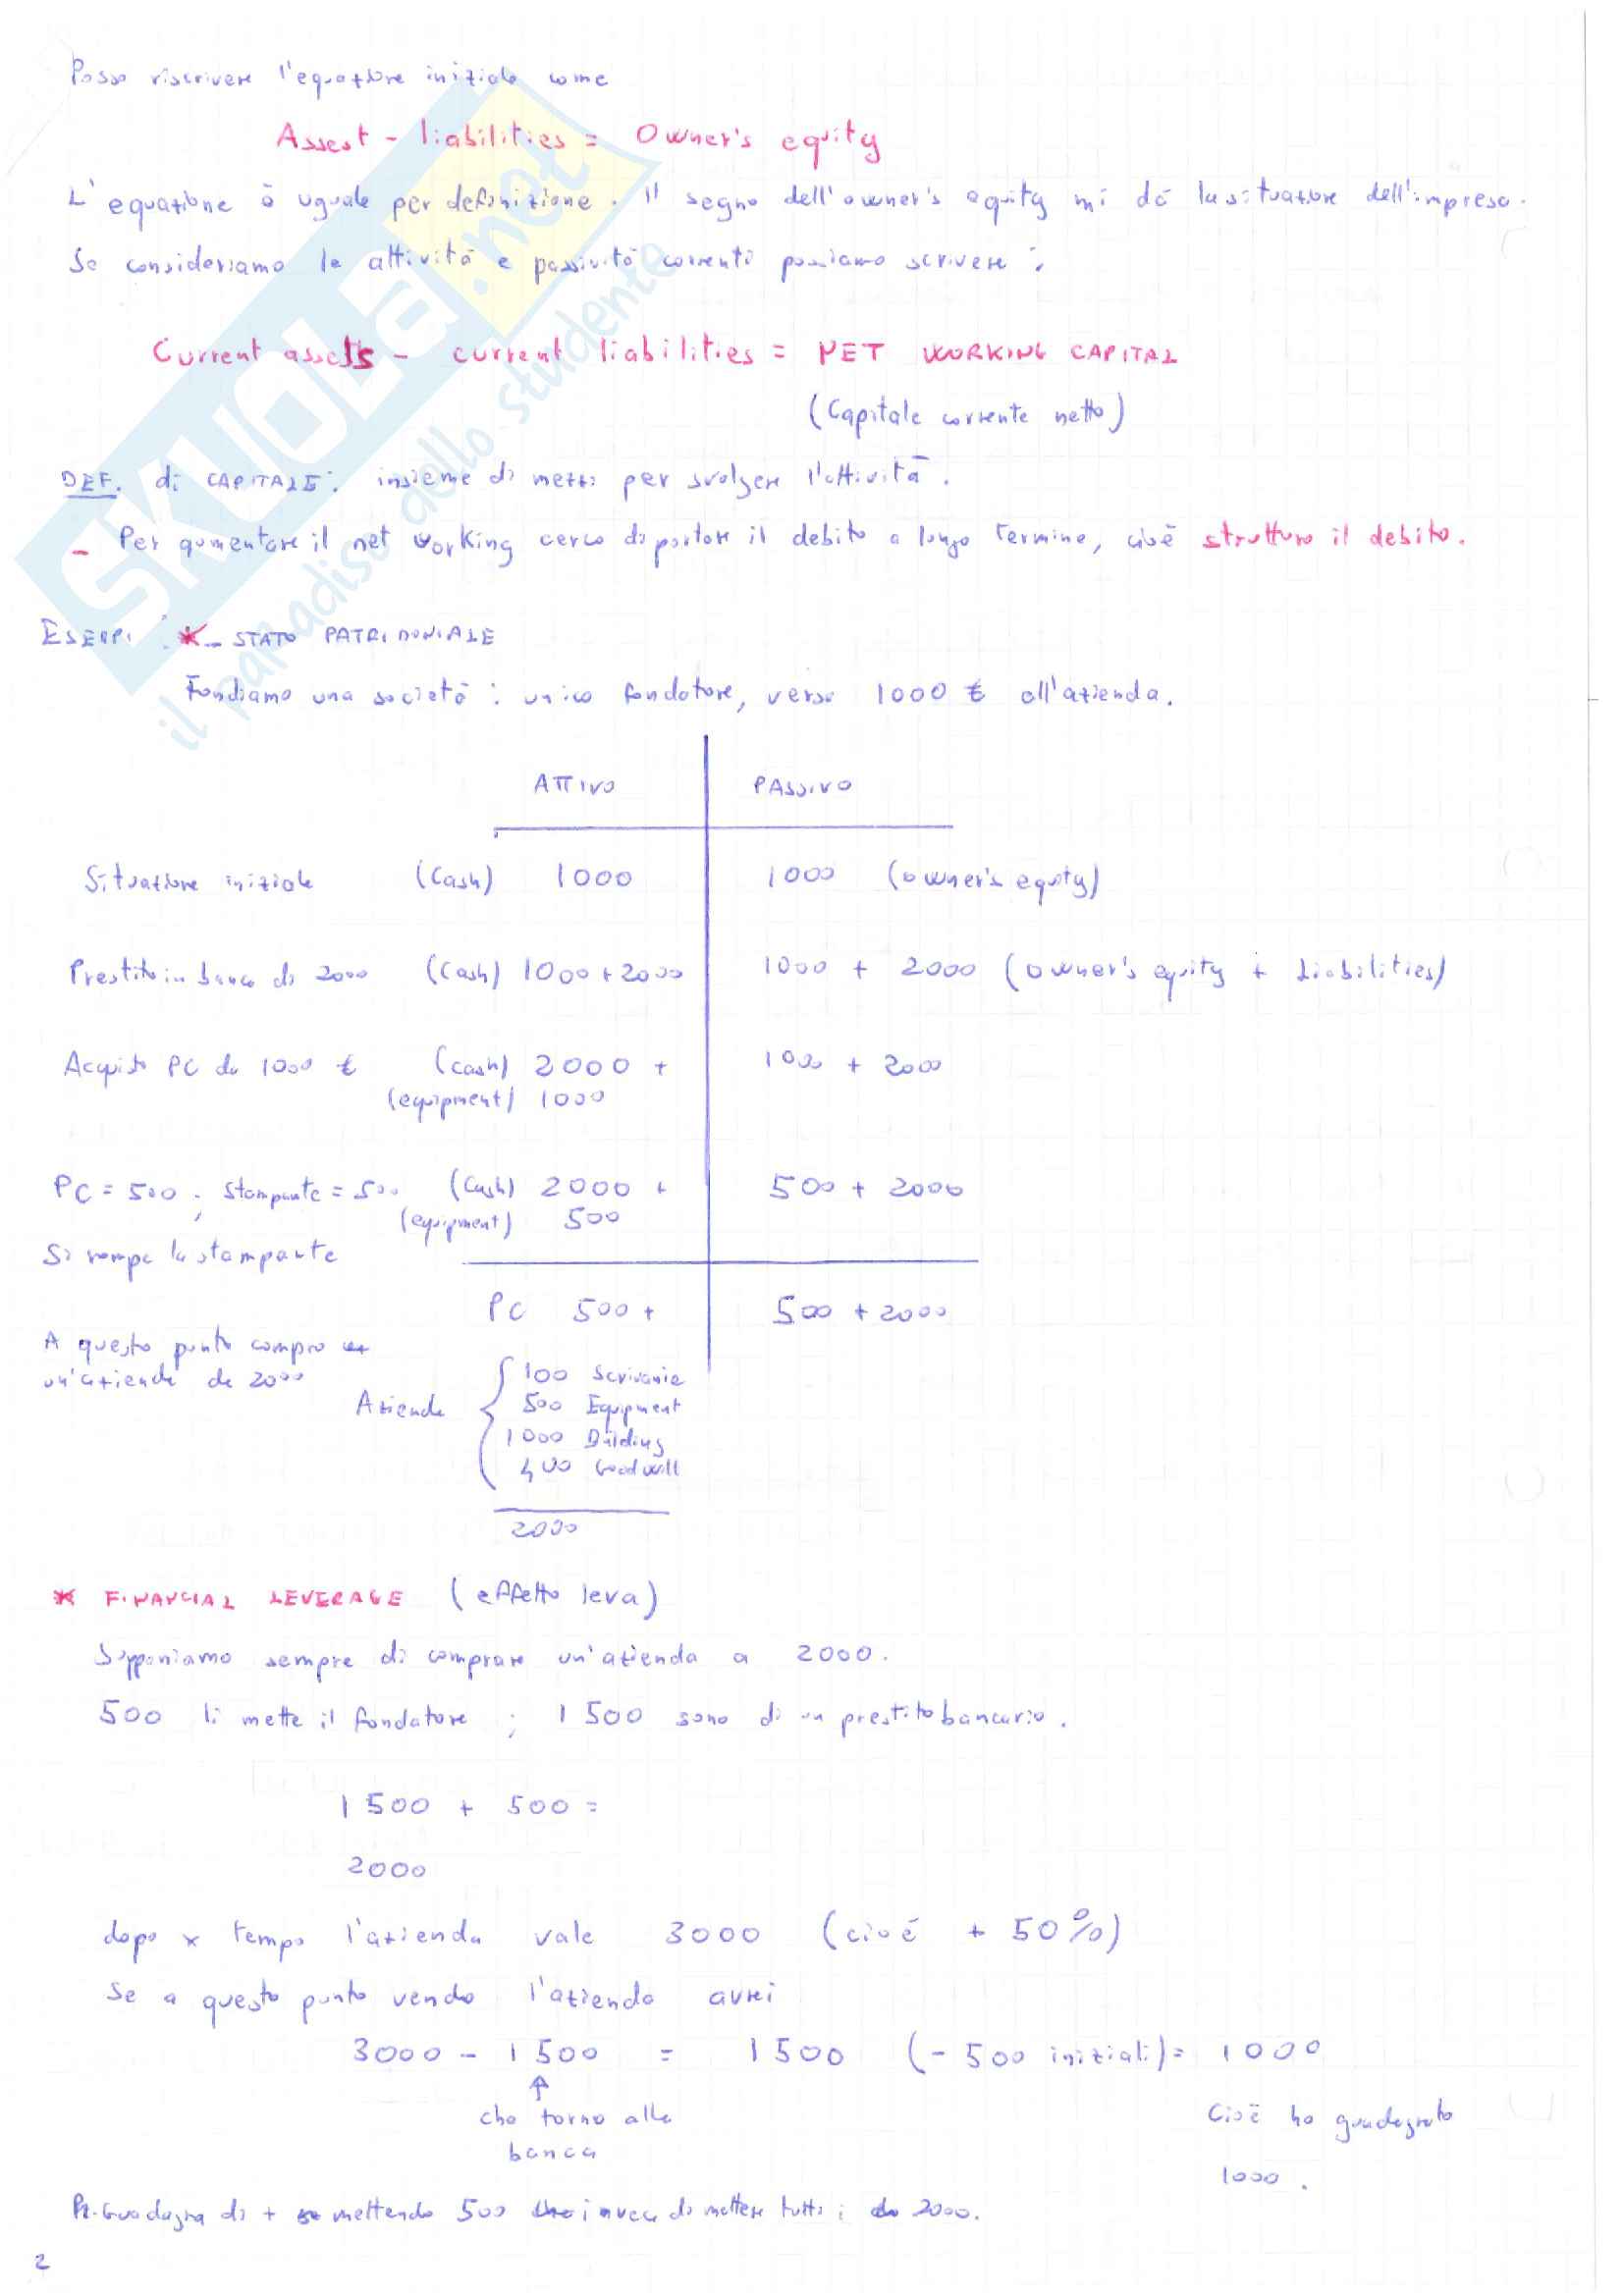 Posso riscrivere l'equazione iniziale come
Assest - liabilities = Owner's equity
L'equazione è uguale per definizione. Il segno dell'owner's equity mi dà la situazione dell'impresa.
Se consideriamo le attività e passività correnti possiamo scrivere:
Current assets - current liabilities = NET WORKING CAPITAL
(Capitale corrente netto)
DEF. di CAPITALE: insieme di mezzi per svolgere l'attività.
- Per aumentare il net working cerco di portare il debito a lungo termine, cioè strutturo il debito.
ESEMPI: * - STATO PATRIMONIALE
Fondiamo una società: unico fondatore, versa 1000 € all'azienda.
ATTIVO PASSIVO
Situazione iniziale (Cash) 1000 1000 (owner's equity)
Prestito in banca di 2000 (Cash) 1000+2000 1000 + 2000 (owner's equity + Liabilities)
Acquisto PC da 1000 € (cash) 2000 + 1000 + 2000
(equipment) 1000
PC = 500; Stampante = 500 (Cash) 2000 + 500 + 2000
(equipment) 500
Si rompe la stampante
PC 500 + 500 + 2000
A questo punto compro
un'azienda da 2000
Azienda
100 Scrivanie
500 Equipment
1000 Building
400 Goodwill
2000
* FINANCIAL LEVERAGE (effetto leva)
Supponiamo sempre di comprare un'azienda a 2000.
500 li mette il fondatore; 1500 sono di un prestito bancario.
1500 + 500 =
2000
dopo x tempo l'azienda vale 3000 (cioè + 50%)
Se a questo punto vendo l'azienda avrei
3000 - 1500 = 1500 (- 500 iniziali) = 1000
che torno alla
banca
Cioè ho guadagnato
1000.
Guadagna di + mettendo 500 invece di mettere tutti i 2000.
2
SKUOLA.net
il paradiso dello studente